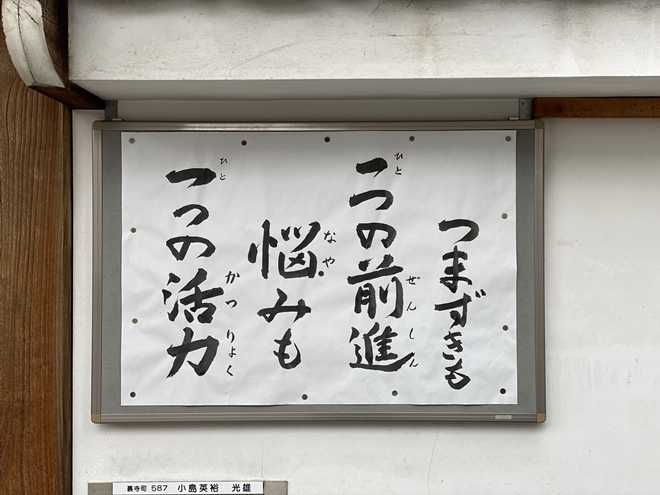 つまずきも
一つの前進
悩みも
一つの活力
ひと
ぜんしん
なや
ひと
かつりょく
裏寺町 587 小島英裕 光雄